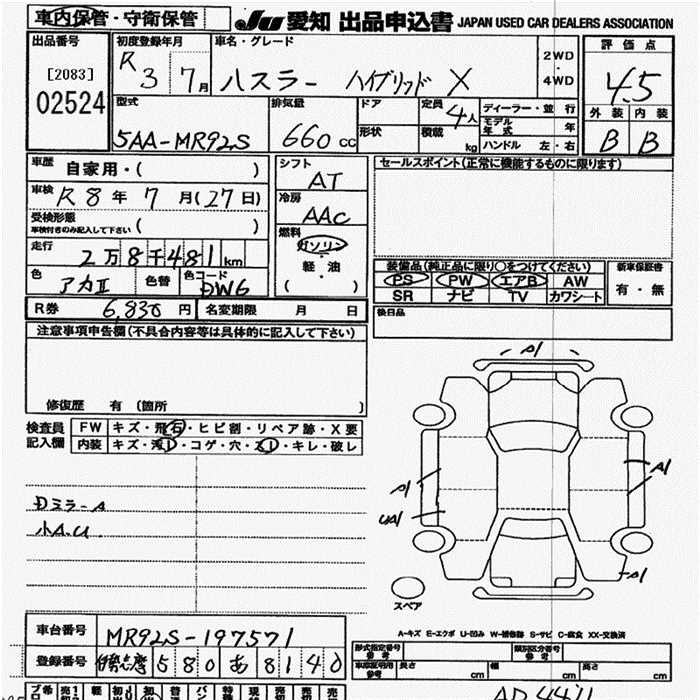 車内保管・守衛保管
JU 愛知 出品申込書 JAPAN USED CAR DEALERS ASSOCIATION
出品番号
[2083]
02524
初度登録年月
R 3 7月
車名・グレード
ハスラー ハイブリッド X
2WD
・
4WD
評価点
4.5
外装 内装
B B
型式
5AA-MR92S
排気量
660 cc
ドア
形状
定員 4人
積載 kg
ディーラー・並行
モデル年式 年
ハンドル 左・右
車歴 自家用・( )
車検 R 8年 7月(27日)
受検形態
車検付きのみ記入して下さい ( )
走行 2万8千481km
色 アカII 色替 色コード DWG
シフト
AT
冷房
AAC
燃料
ガソリン
・
軽・油
( )
セールスポイント(正常に機能するものに限ります)
装備品(純正品に限り○をつけてください)
PS PW エアB AW
SR ナビ TV カワシート
新車保証書
有・無
R券 6,830円 名変期限 月 日
後日品
注意事項申告欄(不具合内容等は具体的に記入して下さい)
修復歴 有 〔箇所 〕
検査員記入欄
FW キズ・飛石・ヒビ割・リペア跡・X要
内装 キズ・汚レ・コゲ・穴・スレ・キレ・破レ
Dミラ-A
小A.U
A1
A1
A1
UA1
A1
スペア
A-キズ E-エクボ U-凹み W-補修跡 S-サビ C-腐食 XX-交換済
車台番号 MR92S-197571
登録番号 伊勢志摩 580 あ 8140
形式指定番号
参考
類別区分番号
参考
車庫証明用
参考
長さ cm
幅 cm
高さ cm